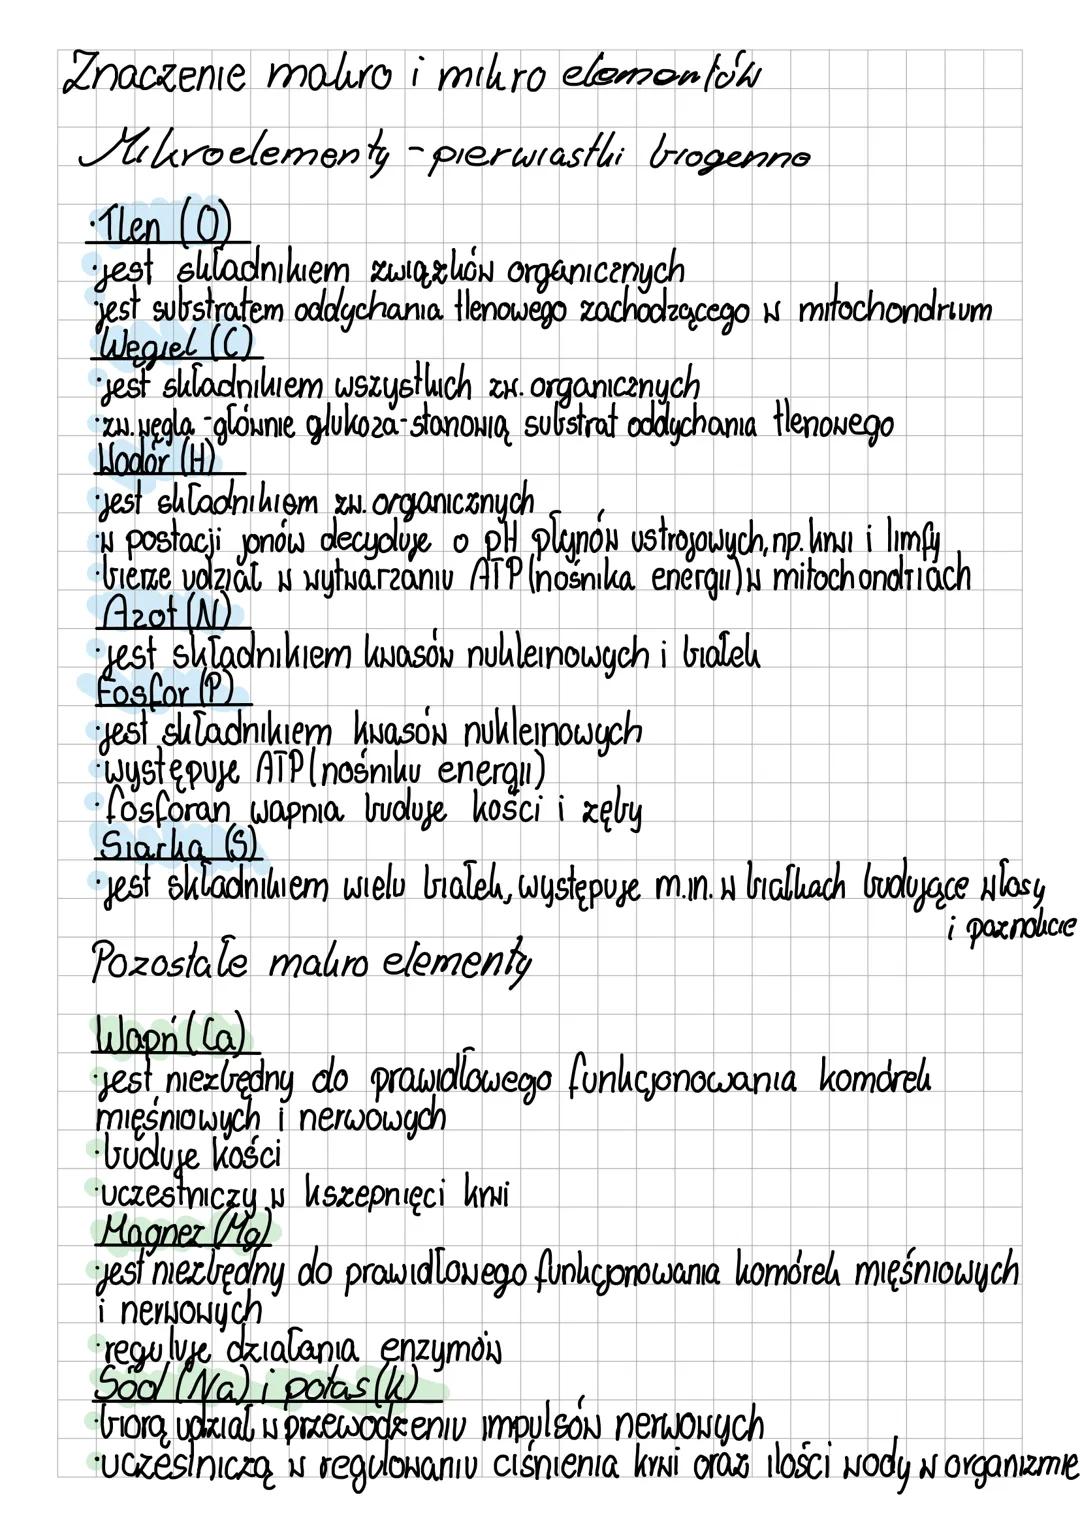 Znaczenie makro i mikro elementów
Mikroelementy - pierwiastki biogenne
·Tlen (O)
·jest składnikiem związków organicznych
jest substratem oddychania tlenowego zachodzącego w mitochondrium
Węgiel (C)
·jest składnikiem wszystkich zw. organicznych
·zw. węgla - głównie glukoza - stanowią substrat oddychania tlenowego
Wodór (H)
·jest składnikiem zw. organicznych
·w postacji jonów decyduje o pH płynów ustrojowych, np. krwi i limfy
·bierze udział w wytwarzaniu ATP (nośnika energii) w mitochondriach
Azot (N)
·jest składnikiem kwasów nukleinowych i białek
Fosfor (P)
·jest składnikiem kwasów nukleinowych
·występuje ATP (nośniku energii)
·fosforan wapnia buduje kości i zęby
Siarka (S)
·jest składnikiem wielu białek, występuje m.in. w białkach budujące włosy
i paznokcie
Pozostałe makro elementy
Wapń (Ca)
·jest niezbędny do prawidłowego funkcjonowania komórek
mięśniowych i nerwowych
·buduje kości
·uczestniczy w kszepnięci krwi
Magnez (Mg)
·jest niezbędny do prawidłowego funkcjonowania komórek mięśniowych
i nerwowych
·reguluje działania enzymów
Sód (Na) i potas (K)
·biorą udział w przewodzeniu impulsów nerwowych
·uczestniczą w regulowaniu ciśnienia krwi oraz ilości wody w organizmie